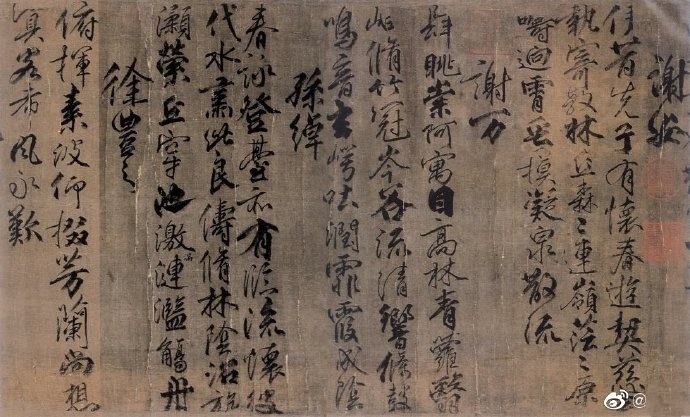 謝安
伊昔先子有懷春遊契茲
執寄敖林丘森〻連嶺茫〻原
疇迥霄垂凝泉散流
謝万
肆眺崇阿寓目高林青蘿翳
岫脩竹冠岑谷流清響條鼓
鳴音玄崿吐潤霏霞成陰
孫綽
春詠登臺亦有臨流懷彼
伐水肅此良儔脩林陰沼旋
瀨縈丘穿池激漣濫觴舟
徐豊之
俯揮素波仰掇芳蘭尚想
客希風永歎
@